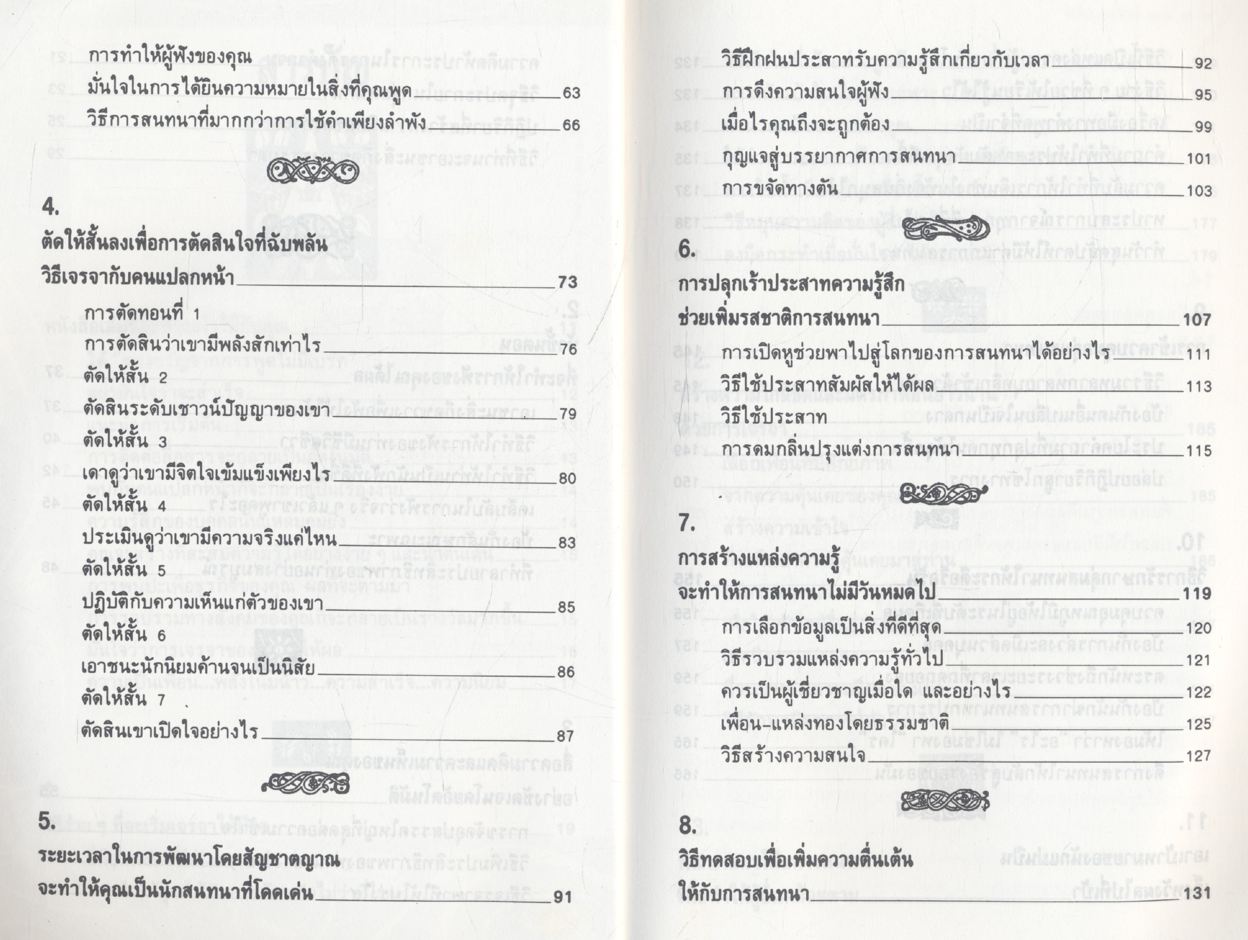 การทำให้ผู้ฟังของคุณ
มั่นใจในการได้ยินความหมายในสิ่งที่คุณพูด 63
วิธีการสนทนาที่มากกว่าการใช้คำเพียงลำพัง 66
4.
ตัดให้สั้นลงเพื่อการตัดสินใจที่ฉับพลัน
วิธีเจรจากับคนแปลกหน้า 73
การตัดทอนที่ 1
การตัดสินว่าเขามีพลังสักเท่าไร 76
ตัดให้สั้น 2
ตัดสินระดับเชาวน์ปัญญาของเขา 79
ตัดให้สั้น 3
เดาดูว่าเขามีจิตใจเข้มแข็งเพียงไร 80
ตัดให้สั้น 4
ประเมินดูว่าเขามีความจริงแค่ไหน 83
ตัดให้สั้น 5
ปฏิบัติกับความเห็นแก่ตัวของเขา 85
ตัดให้สั้น 6
เอาชนะนักนิยมค้านจนเป็นนิสัย 86
ตัดให้สั้น 7
ตัดสินเขาเปิดใจอย่างไร 87
5.
ระยะเวลาในการพัฒนาโดยสัญชาตญาณ
จะทำให้คุณเป็นนักสนทนาที่โดดเด่น 91
วิธีฝึกฝนประสาทรับความรู้สึกเกี่ยวกับเวลา 92
การดึงความสนใจผู้ฟัง 95
เมื่อไรคุณถึงจะถูกต้อง 99
กุญแจสู่บรรยากาศการสนทนา 101
การขจัดทางตัน 103
6.
การปลุกเร้าประสาทความรู้สึก
ช่วยเพิ่มรสชาติการสนทนา 107
การเปิดหูช่วยพาไปสู่โลกของการสนทนาได้อย่างไร 111
วิธีใช้ประสาทสัมผัสให้ได้ผล 113
วิธีใช้ประสาท
การดมกลิ่นปรุงแต่งการสนทนา 115
7.
การสร้างแหล่งความรู้
จะทำให้การสนทนาไม่มีวันหมดไป 119
การเลือกข้อมูลเป็นสิ่งที่ดีที่สุด 120
วิธีรวบรวมแหล่งความรู้ทั่วไป 121
ควรเป็นผู้เชี่ยวชาญเมื่อใด และอย่างไร 122
เพื่อน-แหล่งทองโดยธรรมชาติ 125
วิธีสร้างความสนใจ 127
8.
วิธีทดสอบเพื่อเพิ่มความตื่นเต้น
ให้กับการสนทนา 131